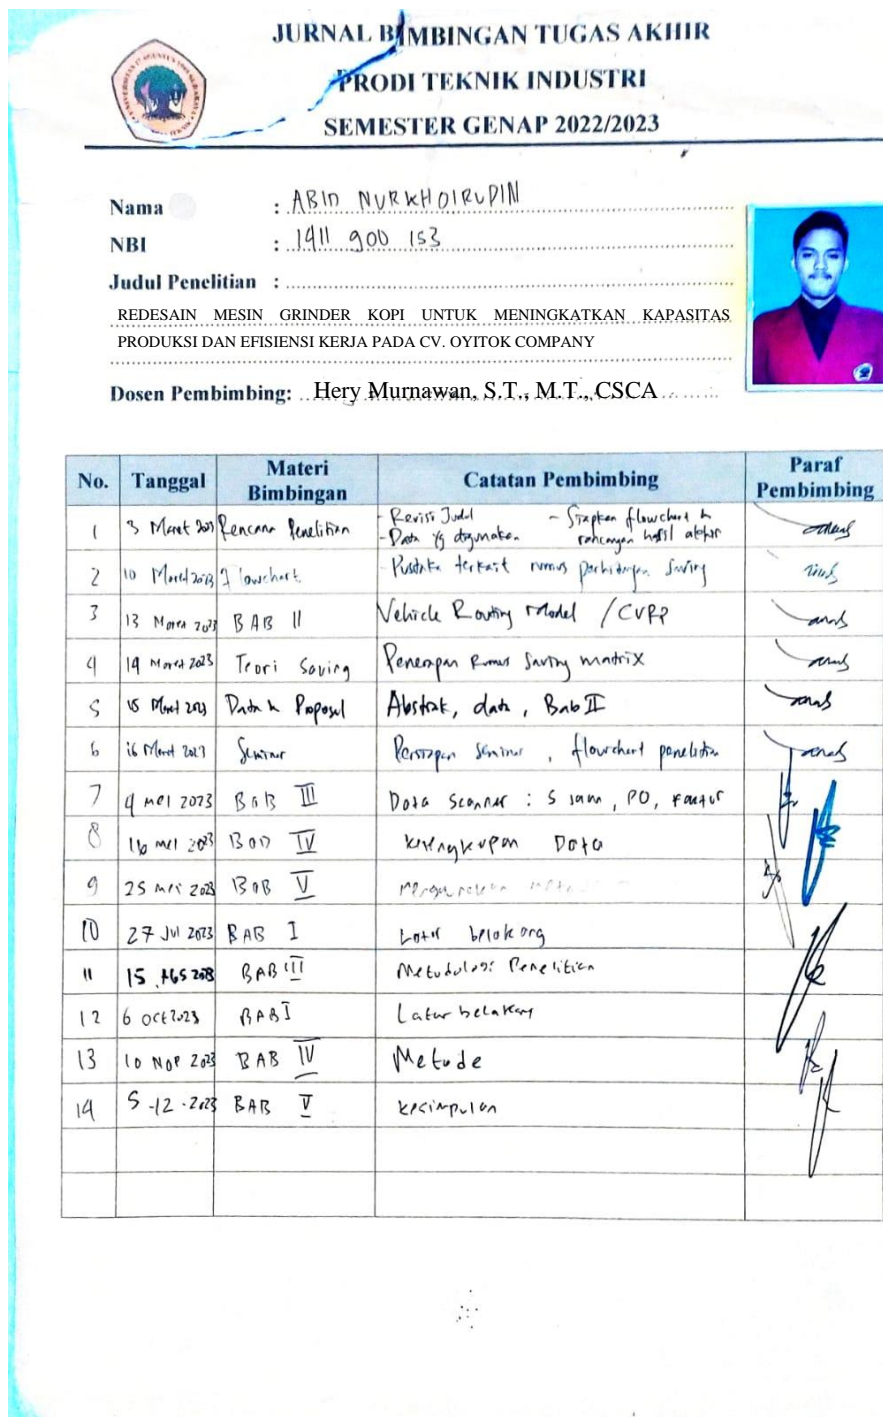 JURNAL BIMBINGAN TUGAS AKHIR
PRODI TEKNIK INDUSTRI
SEMESTER GENAP 2022/2023
Nama : ABID NURKHOIRUDIN
NBI : 1411 900 153
Judul Penelitian :
REDESAIN MESIN GRINDER KOPI UNTUK MENINGKATKAN KAPASITAS
PRODUKSI DAN EFISIENSI KERJA PADA CV. OYITOK COMPANY
Dosen Pembimbing: Hery Murnawan, S.T., M.T., CSCA
No. Tanggal Materi Bimbingan Catatan Pembimbing Paraf Pembimbing
1 3 Maret 2023 Rencana Penelitian - Revisi Judul - Siapkan flowchart &
- Data yg digunakan rancangan hasil akhir
2 10 Maret 2023 Flowchart - Pustaka terkait rumus perhitungan Saving
3 13 Maret 2023 BAB II Vehicle Routing Model / CVRP
4 14 Maret 2023 Teori Saving Penerapan Rumus Saving matrix
5 15 Maret 2023 Data & Proposal Abstrak, data, Bab II
6 16 Maret 2023 Seminar Persiapan Seminar, flowchart penelitian
7 4 mei 2023 BAB III Data Scanner : 5 jam, PO, Faktur
8 16 mei 2023 BAB IV Data
9 25 mei 2023 BAB V
10 27 Jul 2023 BAB I Latar belakang
11 15 AGS 2023 BAB III Metodologi Penelitian
12 6 Oct 2023 BAB I Latar belakang
13 10 NOP 2023 BAB IV Metode
14 5-12-2023 BAB V kesimpulan